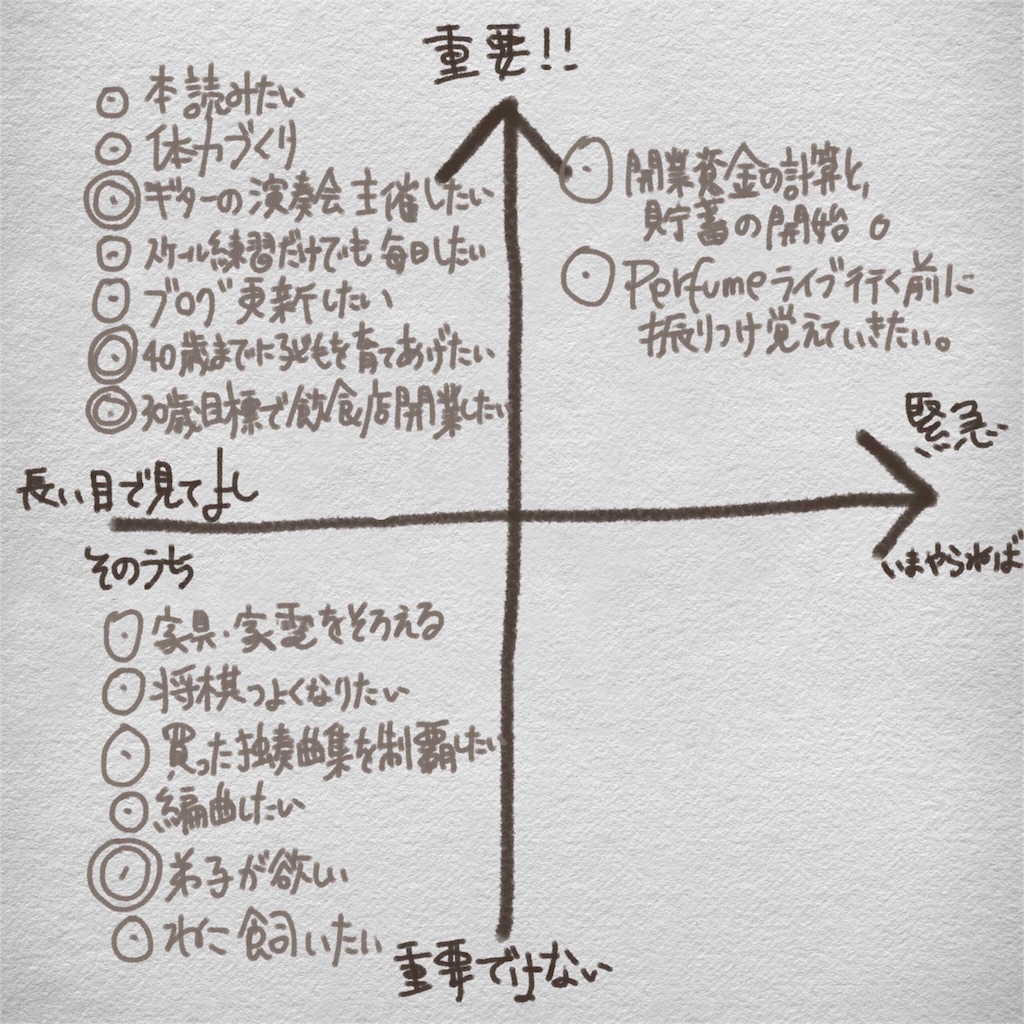 重要!!
本読みたい
体力づくり
ギターの演奏会主催したい
スケール練習だけでも毎日したい
ブログ更新したい
40歳までに子どもを育てあげたい
30歳目標で飲食店開業したい
開業資金の計算と、
貯蓄の開始。
Perfumeライブ行く前に
振りつけ覚えていきたい。
緊急
長い目で見てよし
そのうち
いまやられば
家具・家電をそろえる
将棋つよくなりたい
買った独奏曲集を制覇したい
編曲したい
弟子が欲しい
ねこ飼いたい
重要ではない